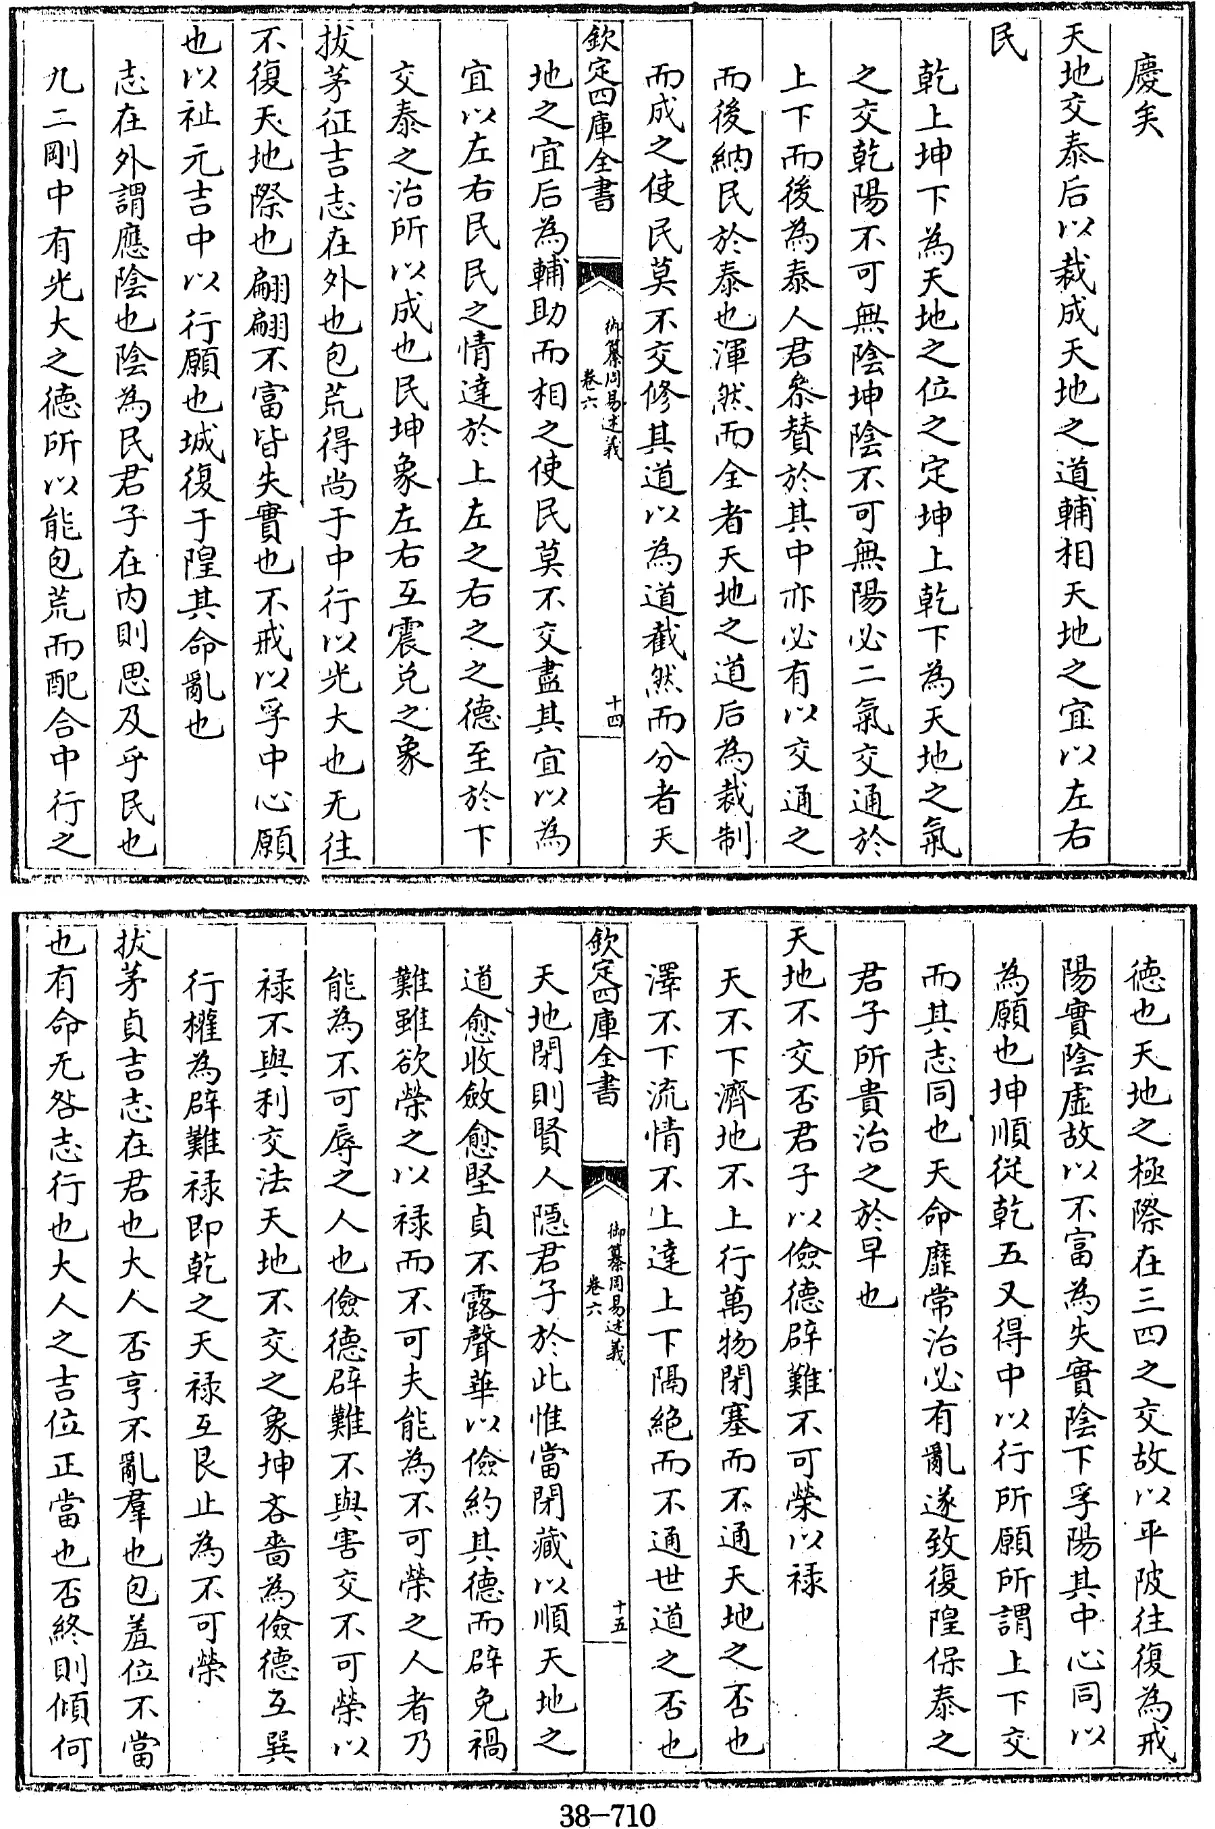 慶矣
天地交泰后以裁成天地之道輔相天地之宜以左右
民
乾上坤下為天地之位之定坤上乾下為天地之氣
之交乾陽不可無陰坤陰不可無陽必二氣交通於
上下而後為泰人君叅贊於其中亦必有以交通之
而後納民於泰也渾然而全者天地之道后為裁制
而成之使民莫不交修其道以為道截然而分者天
欽定四庫全書
御纂周易述義
卷六
十四
地之宜后為輔助而相之使民莫不交盡其宜以為
宜以左右民民之情達於上左之右之之德至於下
交泰之治所以成也民坤象左右互震兌之象
拔茅征吉志在外也包荒得尚于中行以光大也无往
不復天地際也翩翩不富皆失實也不戒以孚中心願
也以祉元吉中以行願也城復于隍其命亂也
志在外謂應陰也陰為民君子在內則思及乎民也
九二剛中有光大之德所以能包荒而配合中行之
德也天地之極際在三四之交故以平陂往復為戒
陽實陰虛故以不富為失實陰下孚陽其中心同以
為願也坤順從乾五又得中以行所願所謂上下交
而其志同也天命靡常治必有亂遂致復隍保泰之
君子所貴治之於早也
天地不交否君子以儉德辟難不可榮以祿
天不下濟地不上行萬物閉塞而不通天地之否也
澤不下流情不上達上下隔絕而不通世道之否也
欽定四庫全書
御纂周易述義
卷六
十五
天地閉則賢人隱君子於此惟當閉藏以順天地之
道愈收斂愈堅貞不露聲華以儉約其德而辟免禍
難雖欲榮之以祿而不可夫能為不可榮之人者乃
能為不可辱之人也儉德辟難不與害交不可榮以
祿不與利交法天地不交之象坤吝嗇為儉德互巽
行權為辟難祿即乾之天祿互艮止為不可榮
拔茅貞吉志在君也大人否亨不亂羣也包羞位不當
也有命无咎志行也大人之吉位正當也否終則傾何
38-710